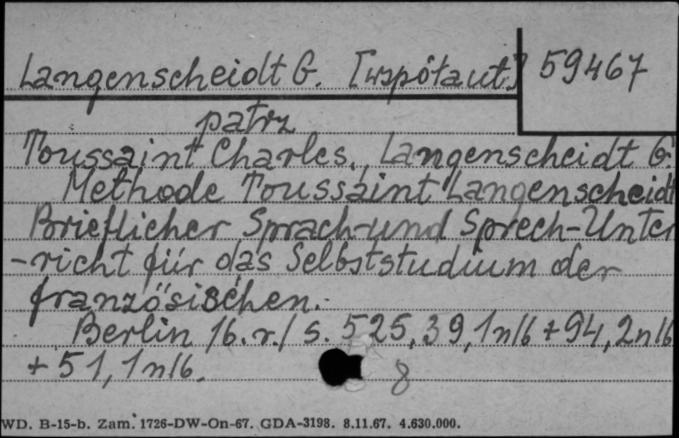 Langenscheidt G. [współaut.] 59467
patrz
Toussaint Charles, Langenscheidt G.
Methode Toussaint Langenscheidt
Brieflicher Sprach-und Sprech-Unter
-richt für das Selbststudium der
französischen.
Berlin /b.r./ s. 525, 39, 1nlb + 94, 2nlb
+ 51, 1nlb.
8
WD. B-15-b. Zam. 1726-DW-On-67. GDA-3198. 8.11.67. 4.630.000.